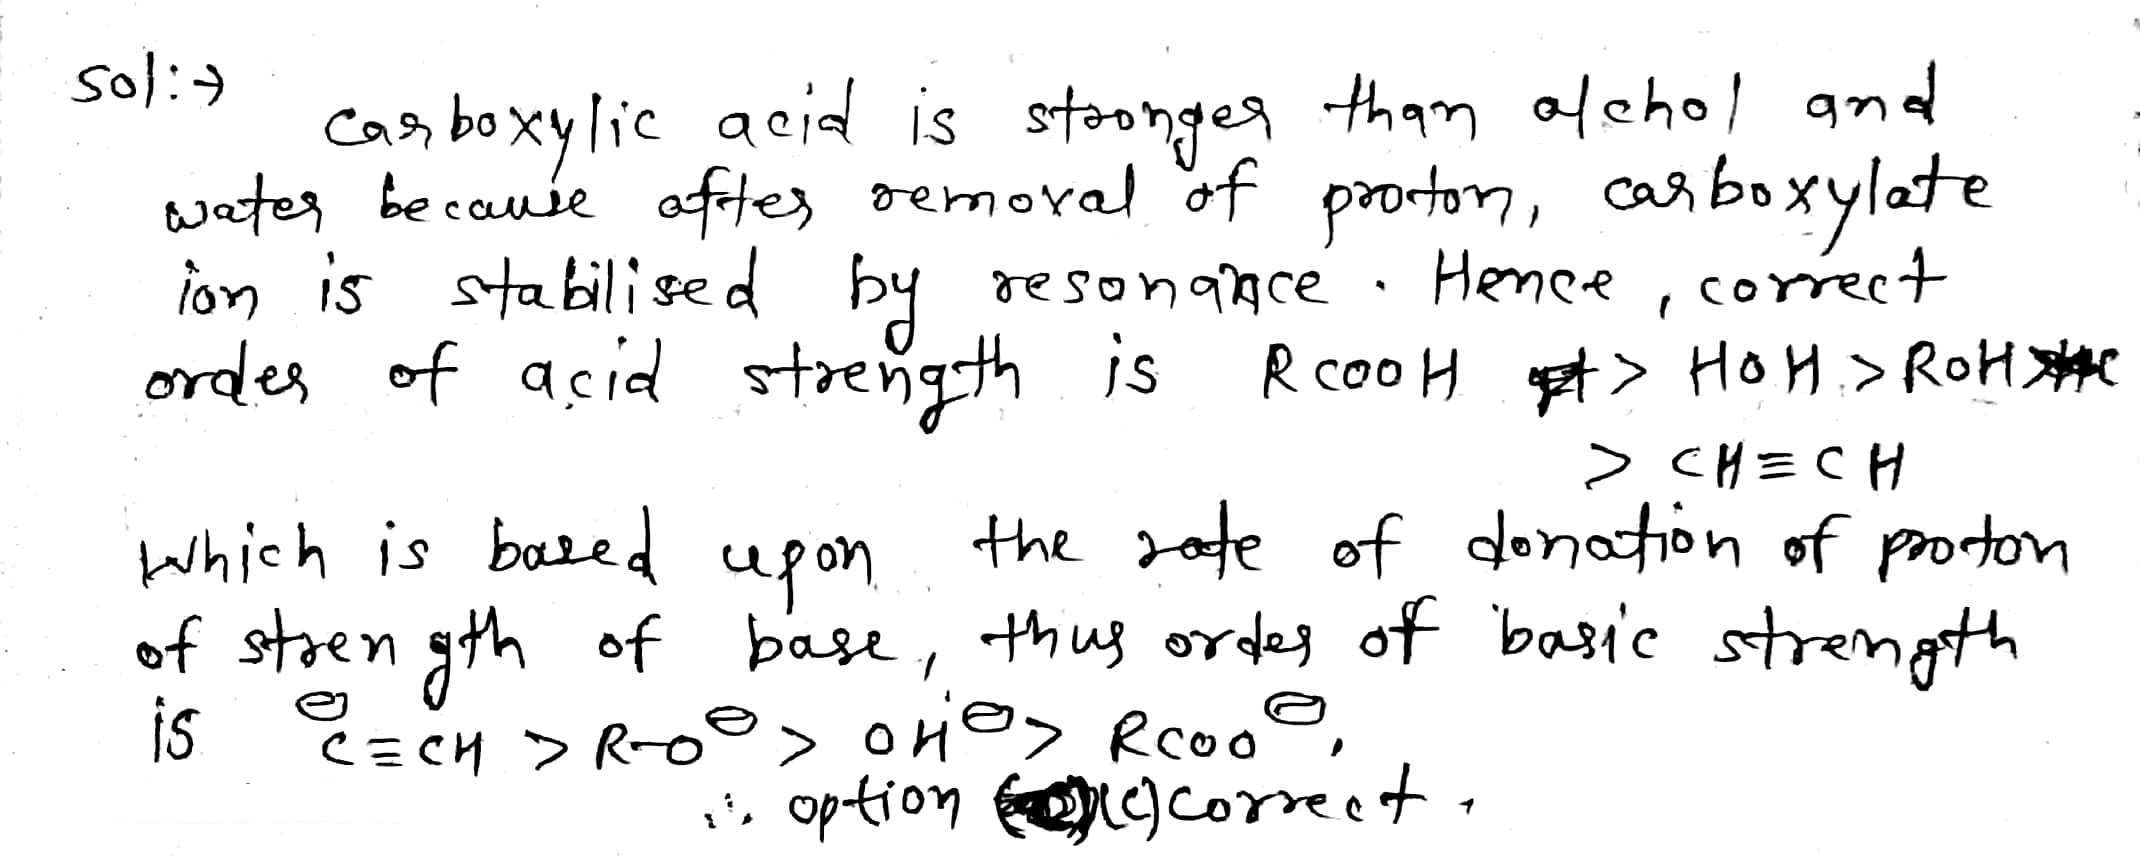 Sol:→
Carboxylic acid is stronger than alchol and
water because after removal of proton, carboxylate
ion is stabilised by resonance. Hence, correct
order of acid strength is RCOOH > HOH > ROH
> CH≡CH
Which is based upon the rate of donation of proton
of strength of base, thus order of basic strength
is ⊖C≡CH > R-O⊖ > OH⊖ > RCOO⊖,
∴ option (c) correct.